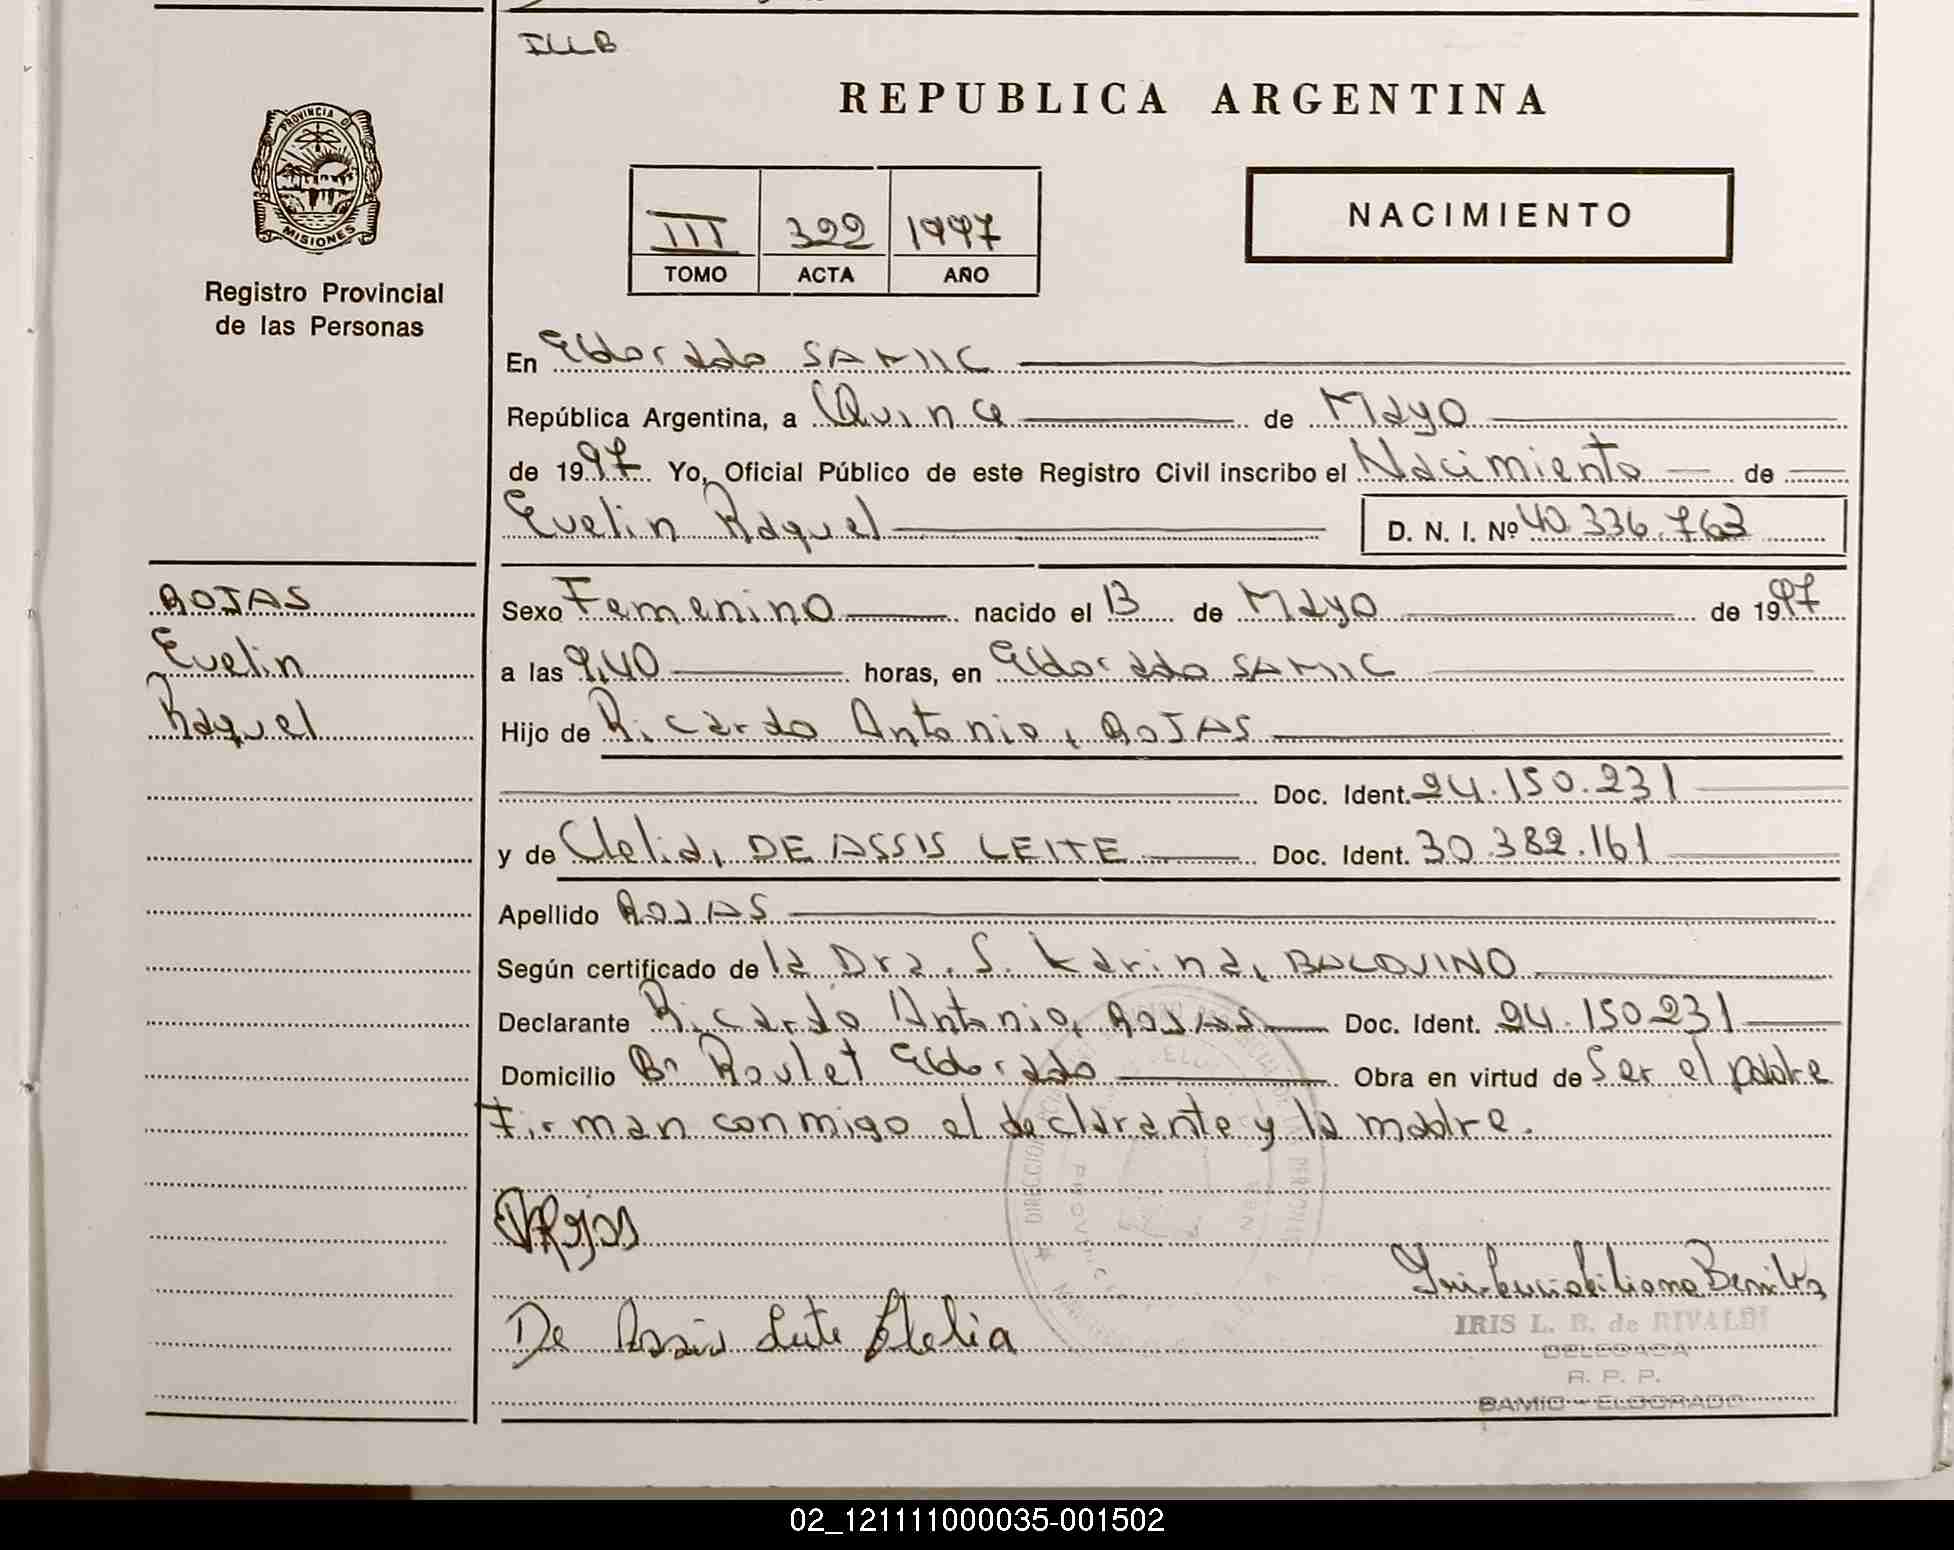 ILLB
REPUBLICA ARGENTINA
PROVINCIA D
MISIONES
Registro Provincial
de las Personas
III 322 1997
TOMO ACTA AÑO
NACIMIENTO
En Eldorado SAMIC
República Argentina, a Quince de Mayo
de 1997 Yo, Oficial Público de este Registro Civil inscribo el Nacimiento de
Evelin Raquel D. N. I. Nº 40.336.763
ROJAS
Evelin
Raquel
Sexo Femenino nacido el 13 de Mayo de 1997
a las 9,40 horas, en Eldorado SAMIC
Hijo de Ricardo Antonio, ROJAS
Doc. Ident. 24.150.231
y de Clelia, DE ASSIS LEITE Doc. Ident. 30.382.161
Apellido ROJAS
Según certificado de la Dra. S. Karina, BALDVINO
Declarante Ricardo Antonio, ROJAS Doc. Ident. 24.150231
Domicilio Bº Roulet Eldorado Obra en virtud de Ser el padre
Firman conmigo el declarante y la madre.
De Assis Leite Clelia
IRIS L. B. de RIVALDI
DELEGADA
R. P. P.
SAMIC - ELDORADO
02_121111000035-001502